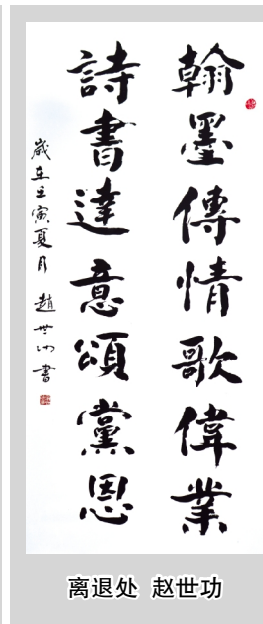 翰墨傳情歌偉業
詩書達意頌黨恩
歲在壬寅夏月 趙世功書
离退处 赵世功